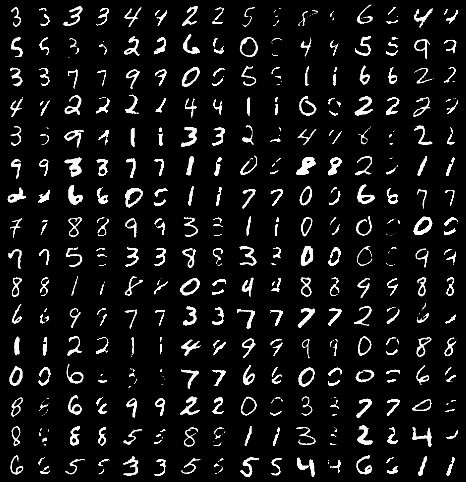 3 3 3 3 4 4 2 2 5 5 8 6 6 4 4
5 5 3 3 2 2 6 6 0 0 4 4 5 5 9 9
3 3 7 7 9 9 0 0 5 5 1 1 6 6 2 2
4 4 2 2 2 2 4 4 1 1 0 0 2 2 2 2
3 3 9 9 1 1 3 3 2 2 4 4 8 2 2
9 9 3 8 7 7 1 1 0 0 8 8 2 2 1 1
2 2 6 6 0 0 1 1 7 7 0 0 6 6 7 7
7 7 8 8 9 9 3 3 1 1 0 0 0 0 0
7 7 5 3 3 8 8 3 3 0 0 0 0 9 9
8 8 1 1 8 8 0 0 4 4 8 8 9 9 8 8
6 6 9 9 7 7 3 3 7 7 7 7 2 2 6
1 1 2 2 1 1 4 4 9 9 9 9 0 0 8 8
0 0 6 3 7 7 6 6 0 0 0 0 6 6
8 8 6 6 9 9 2 2 0 0 3 3 7 7 0
8 8 8 8 5 5 8 8 1 1 3 3 2 2 4
6 6 5 5 3 3 5 5 5 5 4 4 6 6 1 1